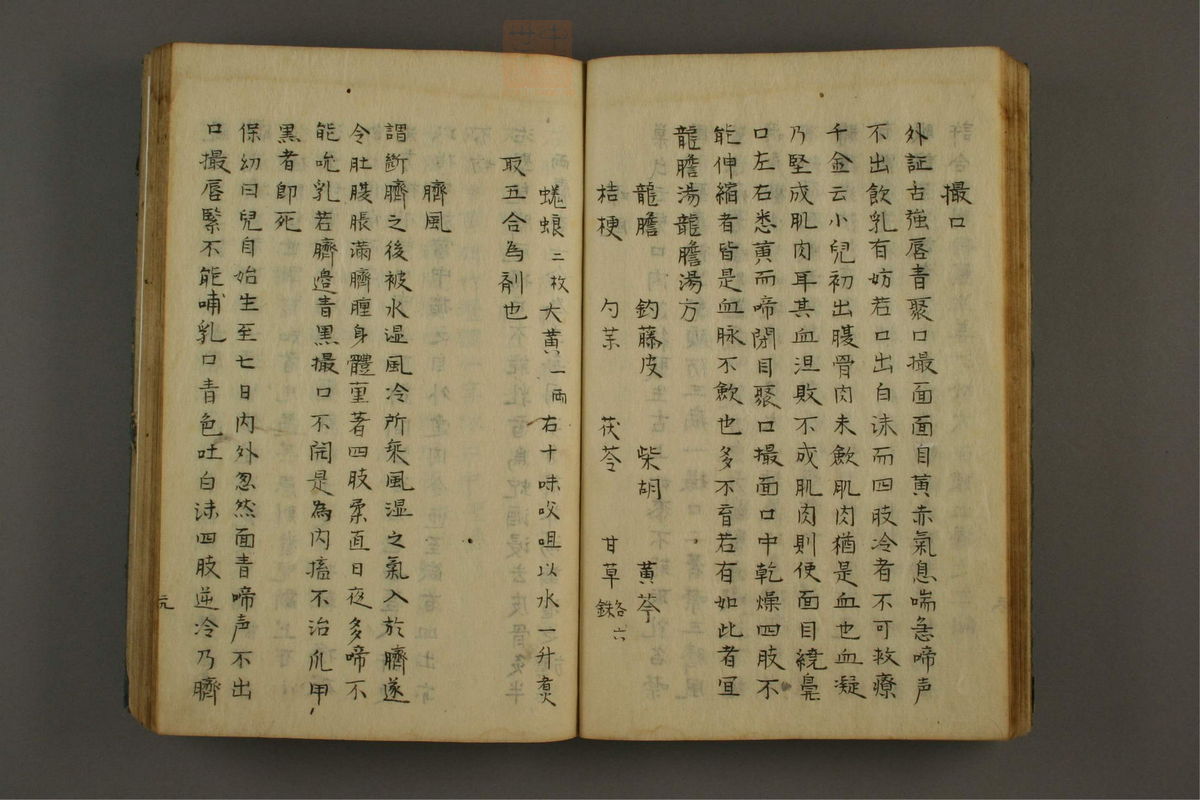 撮口
外証古強唇青聚口撮面面目黄赤氣息喘急啼声
不出飲乳有妨若口出白沫而四肢冷者不可救療
千金云小児初出腹骨肉未歛肌肉猶是血也血凝
乃堅成肌肉耳其血沮敗不成肌肉則使面目繞鼻
口左右悉黄而啼閉目聚口撮面口中乾燥四肢不
能伸縮者皆是血脉不歛也多不育若有如此者宜
龍膽湯龍膽湯方
龍膽 釣藤皮 柴胡 黄芩
桔梗 勺薬 茯苓 甘草各六銖
蜣蜋二枚大黄一両右十味㕮咀以水一升煮
取五合為剤也
臍風
謂斷臍之後被水湿風冷所乘風湿之氣入於臍遂
令肚腹脹滿臍腫身體重著四肢柔直日夜多啼不
能吮乳若臍邉青黒撮口不開是為内搐不治爪甲
黒者即死
保幼曰兒自始生至七日内外忽然面青啼声不出
口撮唇緊不能哺乳口青色吐白沫四肢逆冷乃臍